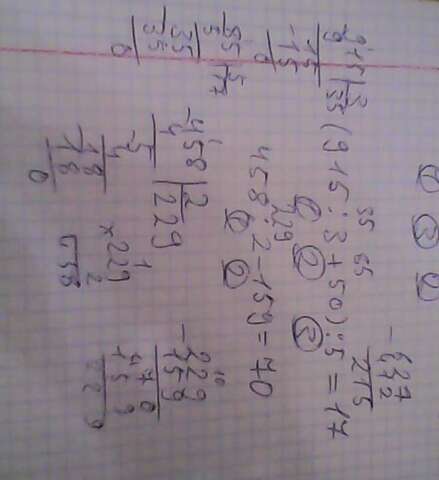 - 627
412
215
35 85
(915:3+50):5=17
① ② ③
229
458:2-159=70
① ②
915|3
9
35
-15
15
0
85|5
5
17
35
35
0
-458|2
4
229
-5
4
-18
18
0
×229
2
-229
159